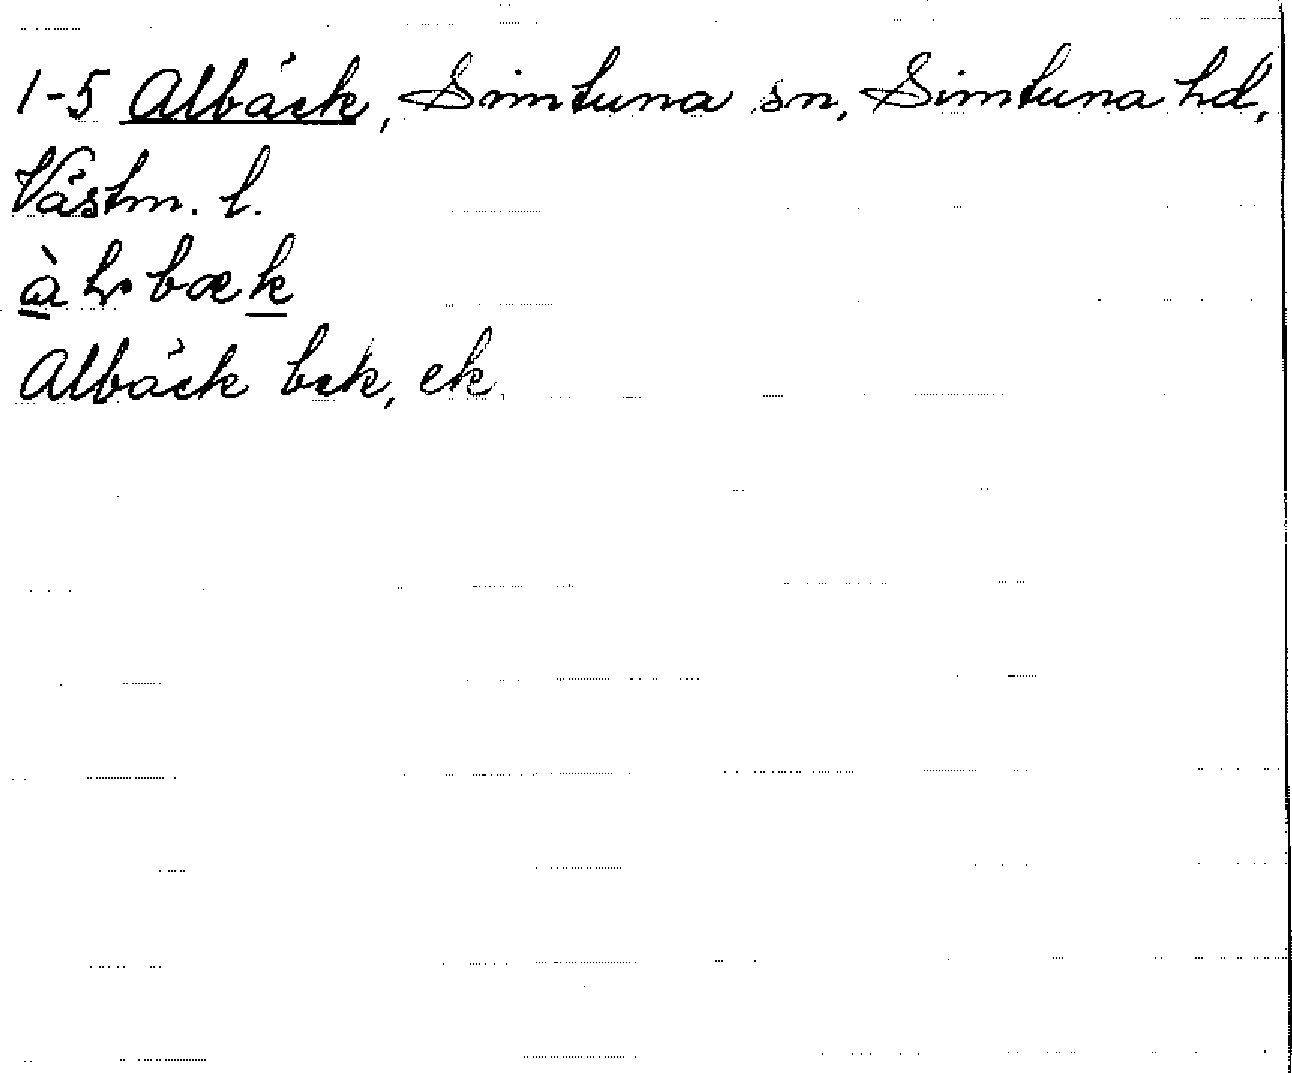 1-5 Albäck, Simtuna sn, Simtuna hd,
Västm. l.
Albäck bek, ek